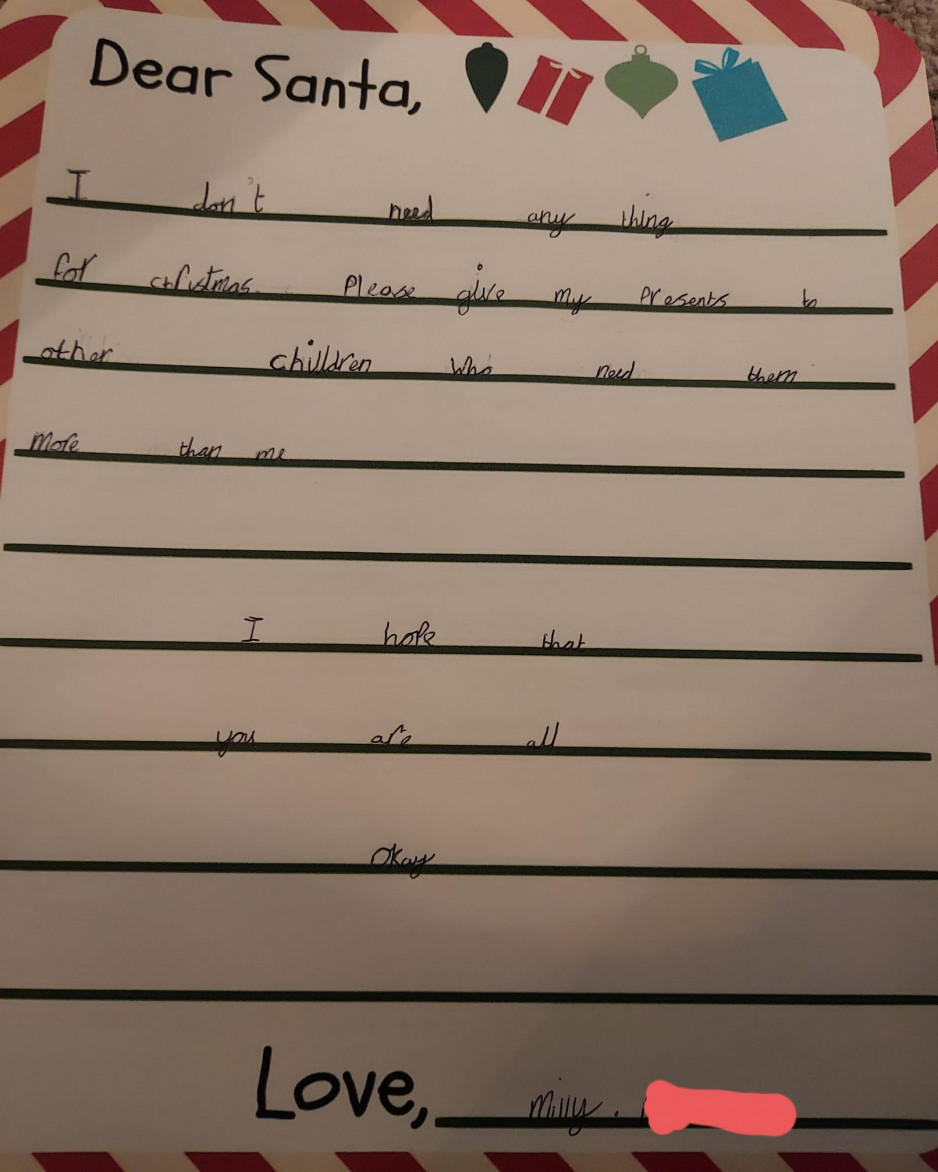 Dear Santa,
I don't need any thing
for christmas. Please give my Presents to
other chilldren who need them
more than me
I hope that
you are all
Okay
Love, Milly.